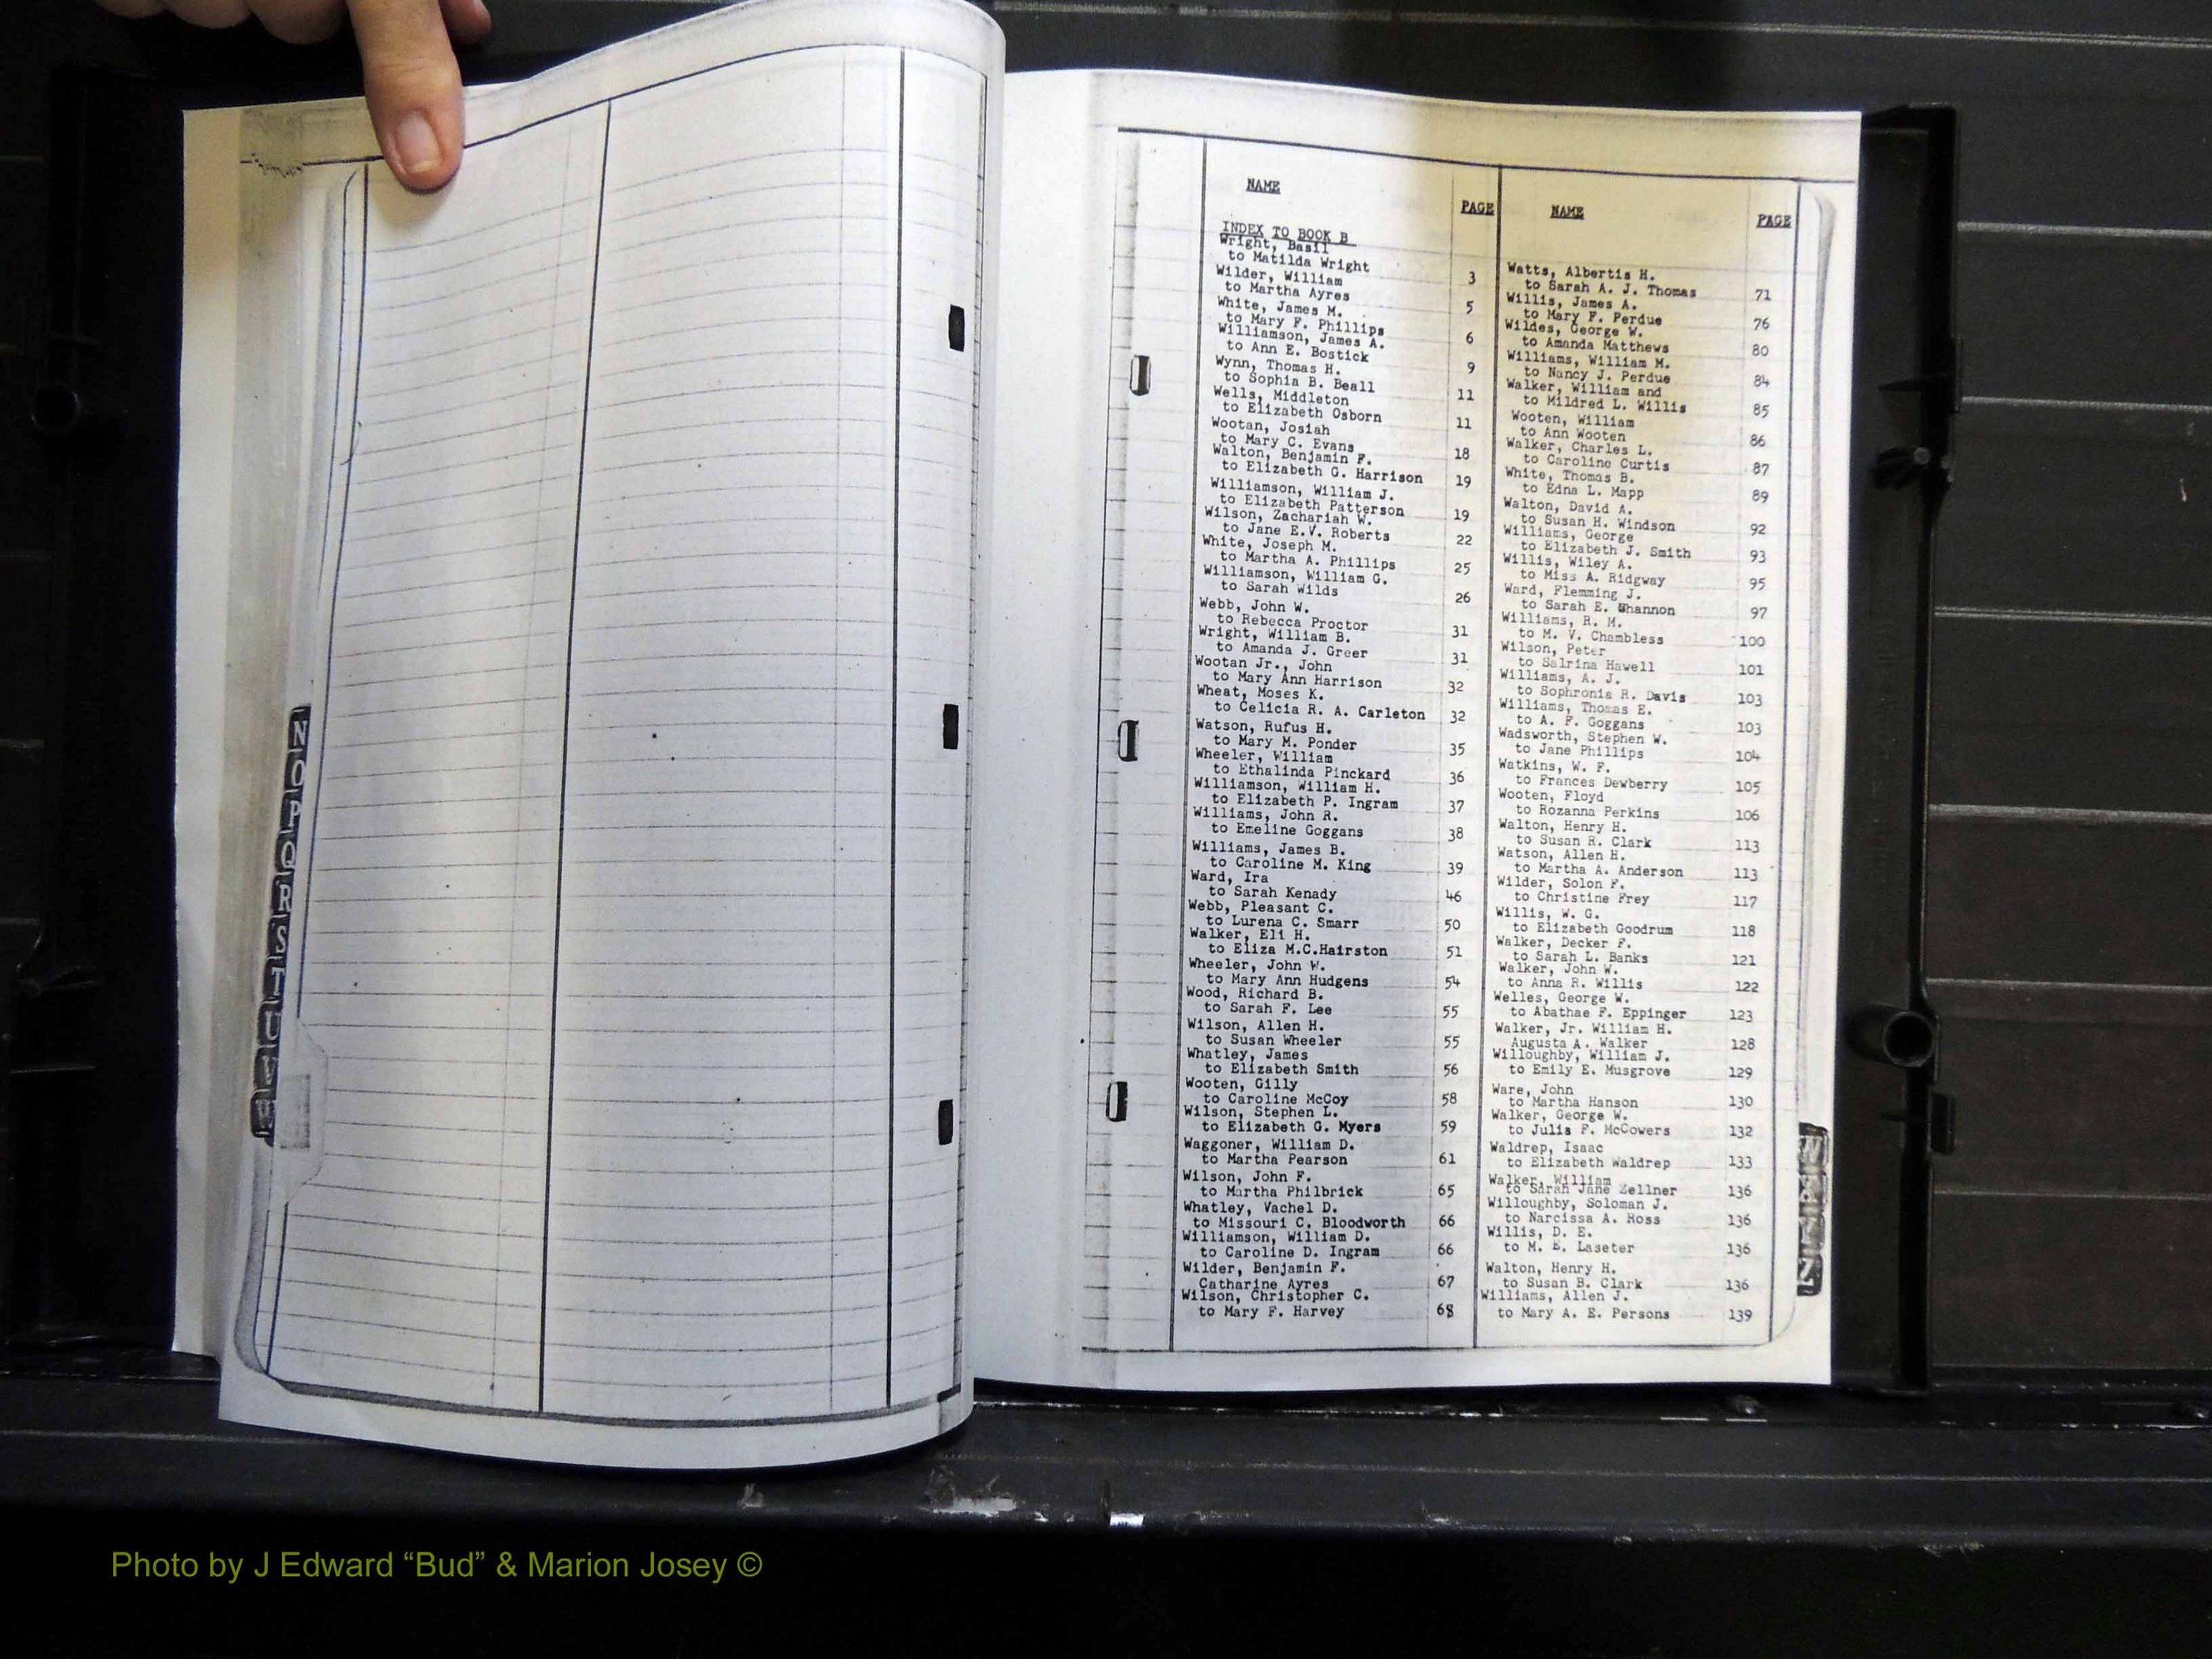 N
O
P
Q
R
S
T
U
V
W
NAME
PAGE
INDEX TO BOOK B
Wright, Basil
to Matilda Wright 3
Wilder, William
to Martha Ayres 5
White, James M.
to Mary F. Phillips 6
Williamson, James A.
to Ann E. Bostick 9
Wynn, Thomas H.
to Sophia B. Beall 11
Wells, Middleton
to Elizabeth Osborn 11
Wootan, Josiah
to Mary C. Evans 18
Walton, Benjamin F.
to Elizabeth G. Harrison 19
Williamson, William J.
to Elizabeth Patterson 19
Wilson, Zachariah W.
to Jane E.V. Roberts 22
White, Joseph M.
to Martha A. Phillips 25
Williamson, William G.
to Sarah Wilds 26
Webb, John W.
to Rebecca Proctor 31
Wright, William B.
to Amanda J. Greer 31
Wootan Jr., John
to Mary Ann Harrison 32
Wheat, Moses K.
to Celicia R. A. Carleton 32
Watson, Rufus H.
to Mary M. Ponder 35
Wheeler, William
to Ethalinda Pinckard 36
Williamson, William H.
to Elizabeth P. Ingram 37
Williams, John R.
to Emeline Goggans 38
Williams, James B.
to Caroline M. King 39
Ward, Ira
to Sarah Kenady 46
Webb, Pleasant C.
to Lurena C. Smarr 50
Walker, Eli H.
to Eliza M.C.Hairston 51
Wheeler, John W.
to Mary Ann Hudgens 54
Wood, Richard B.
to Sarah F. Lee 55
Wilson, Allen H.
to Susan Wheeler 55
Whatley, James
to Elizabeth Smith 56
Wooten, Gilly
to Caroline McCoy 58
Wilson, Stephen L.
to Elizabeth G. Myers 59
Waggoner, William D.
to Martha Pearson 61
Wilson, John F.
to Martha Philbrick 65
Whatley, Vachel D.
to Missouri C. Bloodworth 66
Williamson, William D.
to Caroline D. Ingram 66
Wilder, Benjamin F.
Catharine Ayres 67
Wilson, Christopher C.
to Mary F. Harvey 68
NAME
PAGE
Watts, Albertis H.
to Sarah A. J. Thomas 71
Willis, James A.
to Mary F. Perdue 76
Wildes, George W.
to Amanda Matthews 80
Williams, William M.
to Nancy J. Perdue 84
Walker, William and
to Mildred L. Willis 85
Wooten, William
to Ann Wooten 86
Walker, Charles L.
to Caroline Curtis 87
White, Thomas B.
to Edna L. Mapp 89
Walton, David A.
to Susan H. Windson 92
Williams, George
to Elizabeth J. Smith 93
Willis, Wiley A.
to Miss A. Ridgway 95
Ward, Flemming J.
to Sarah E. Shannon 97
Williams, R. M.
to M. V. Chambless 100
Wilson, Peter
to Salrina Hawell 101
Williams, A. J.
to Sophronia R. Davis 103
Williams, Thomas E.
to A. F. Goggans 103
Wadsworth, Stephen W.
to Jane Phillips 104
Watkins, W. F.
to Frances Dewberry 105
Wooten, Floyd
to Rozanna Perkins 106
Walton, Henry H.
to Susan R. Clark 113
Watson, Allen H.
to Martha A. Anderson 113
Wilder, Solon F.
to Christine Frey 117
Willis, W. G.
to Elizabeth Goodrum 118
Walker, Decker F.
to Sarah L. Banks 121
Walker, John W.
to Anna R. Willis 122
Welles, George W.
to Abathae F. Eppinger 123
Walker, Jr. William H.
Augusta A. Walker 128
Willoughby, William J.
to Emily E. Musgrove 129
Ware, John
to Martha Hanson 130
Walker, George W.
to Julia F. McCowers 132
Waldrep, Isaac
to Elizabeth Waldrep 133
Walker, William
to Sarah Jane Zellner 136
Willoughby, Soloman J.
to Narcissa A. Ross 136
Willis, D. E.
to M. E. Laseter 136
Walton, Henry H.
to Susan B. Clark 136
Williams, Allen J.
to Mary A. E. Persons 139
Photo by J Edward “Bud” & Marion Josey ©